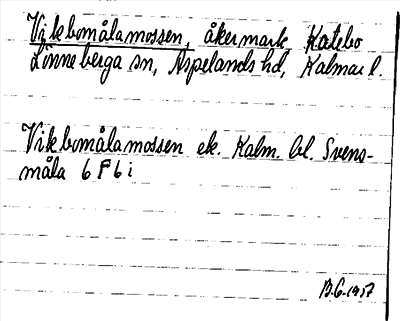 Vikbomålamossen, åkermark, Katebo
Lönneberga sn, Aspelands hd, Kalmar l.
Vikbomålamossen ek. Kalm. bl. Svens-
måla 6 F 6 i